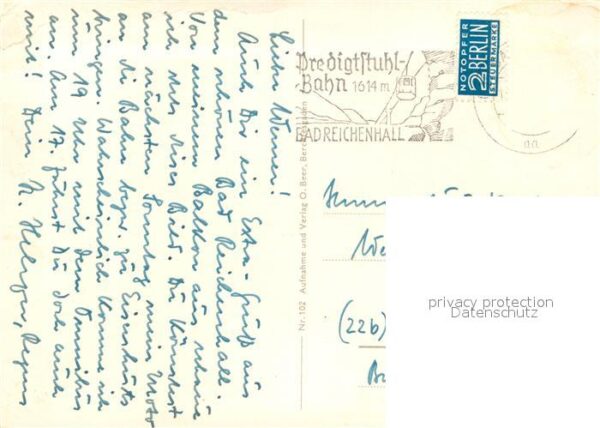 Lieber Werner!
Auch Dir ein Extra-Gruß aus
dem schönen Bad Reichenhall.
Von meinem Balkon aus sehe
ich dies Bild. Du könntest
am nächsten Sonntag mein Moto
an die Bahn bezw. zu
bringen. Wahrscheinlich komme ich
um 19 Uhr mit dem Omnibus
an. Am 17. fährst Du doch auch
mit! Dein
Nr. 102 Aufnahme und Verlag O. Beer, Berchtesgaden
Predigtstuhl-
Bahn 1614 m
BAD REICHENHALL
NOTOPFER
2 BERLIN
STEUERMARKE
(22b)
privacy protection
Datenschutz